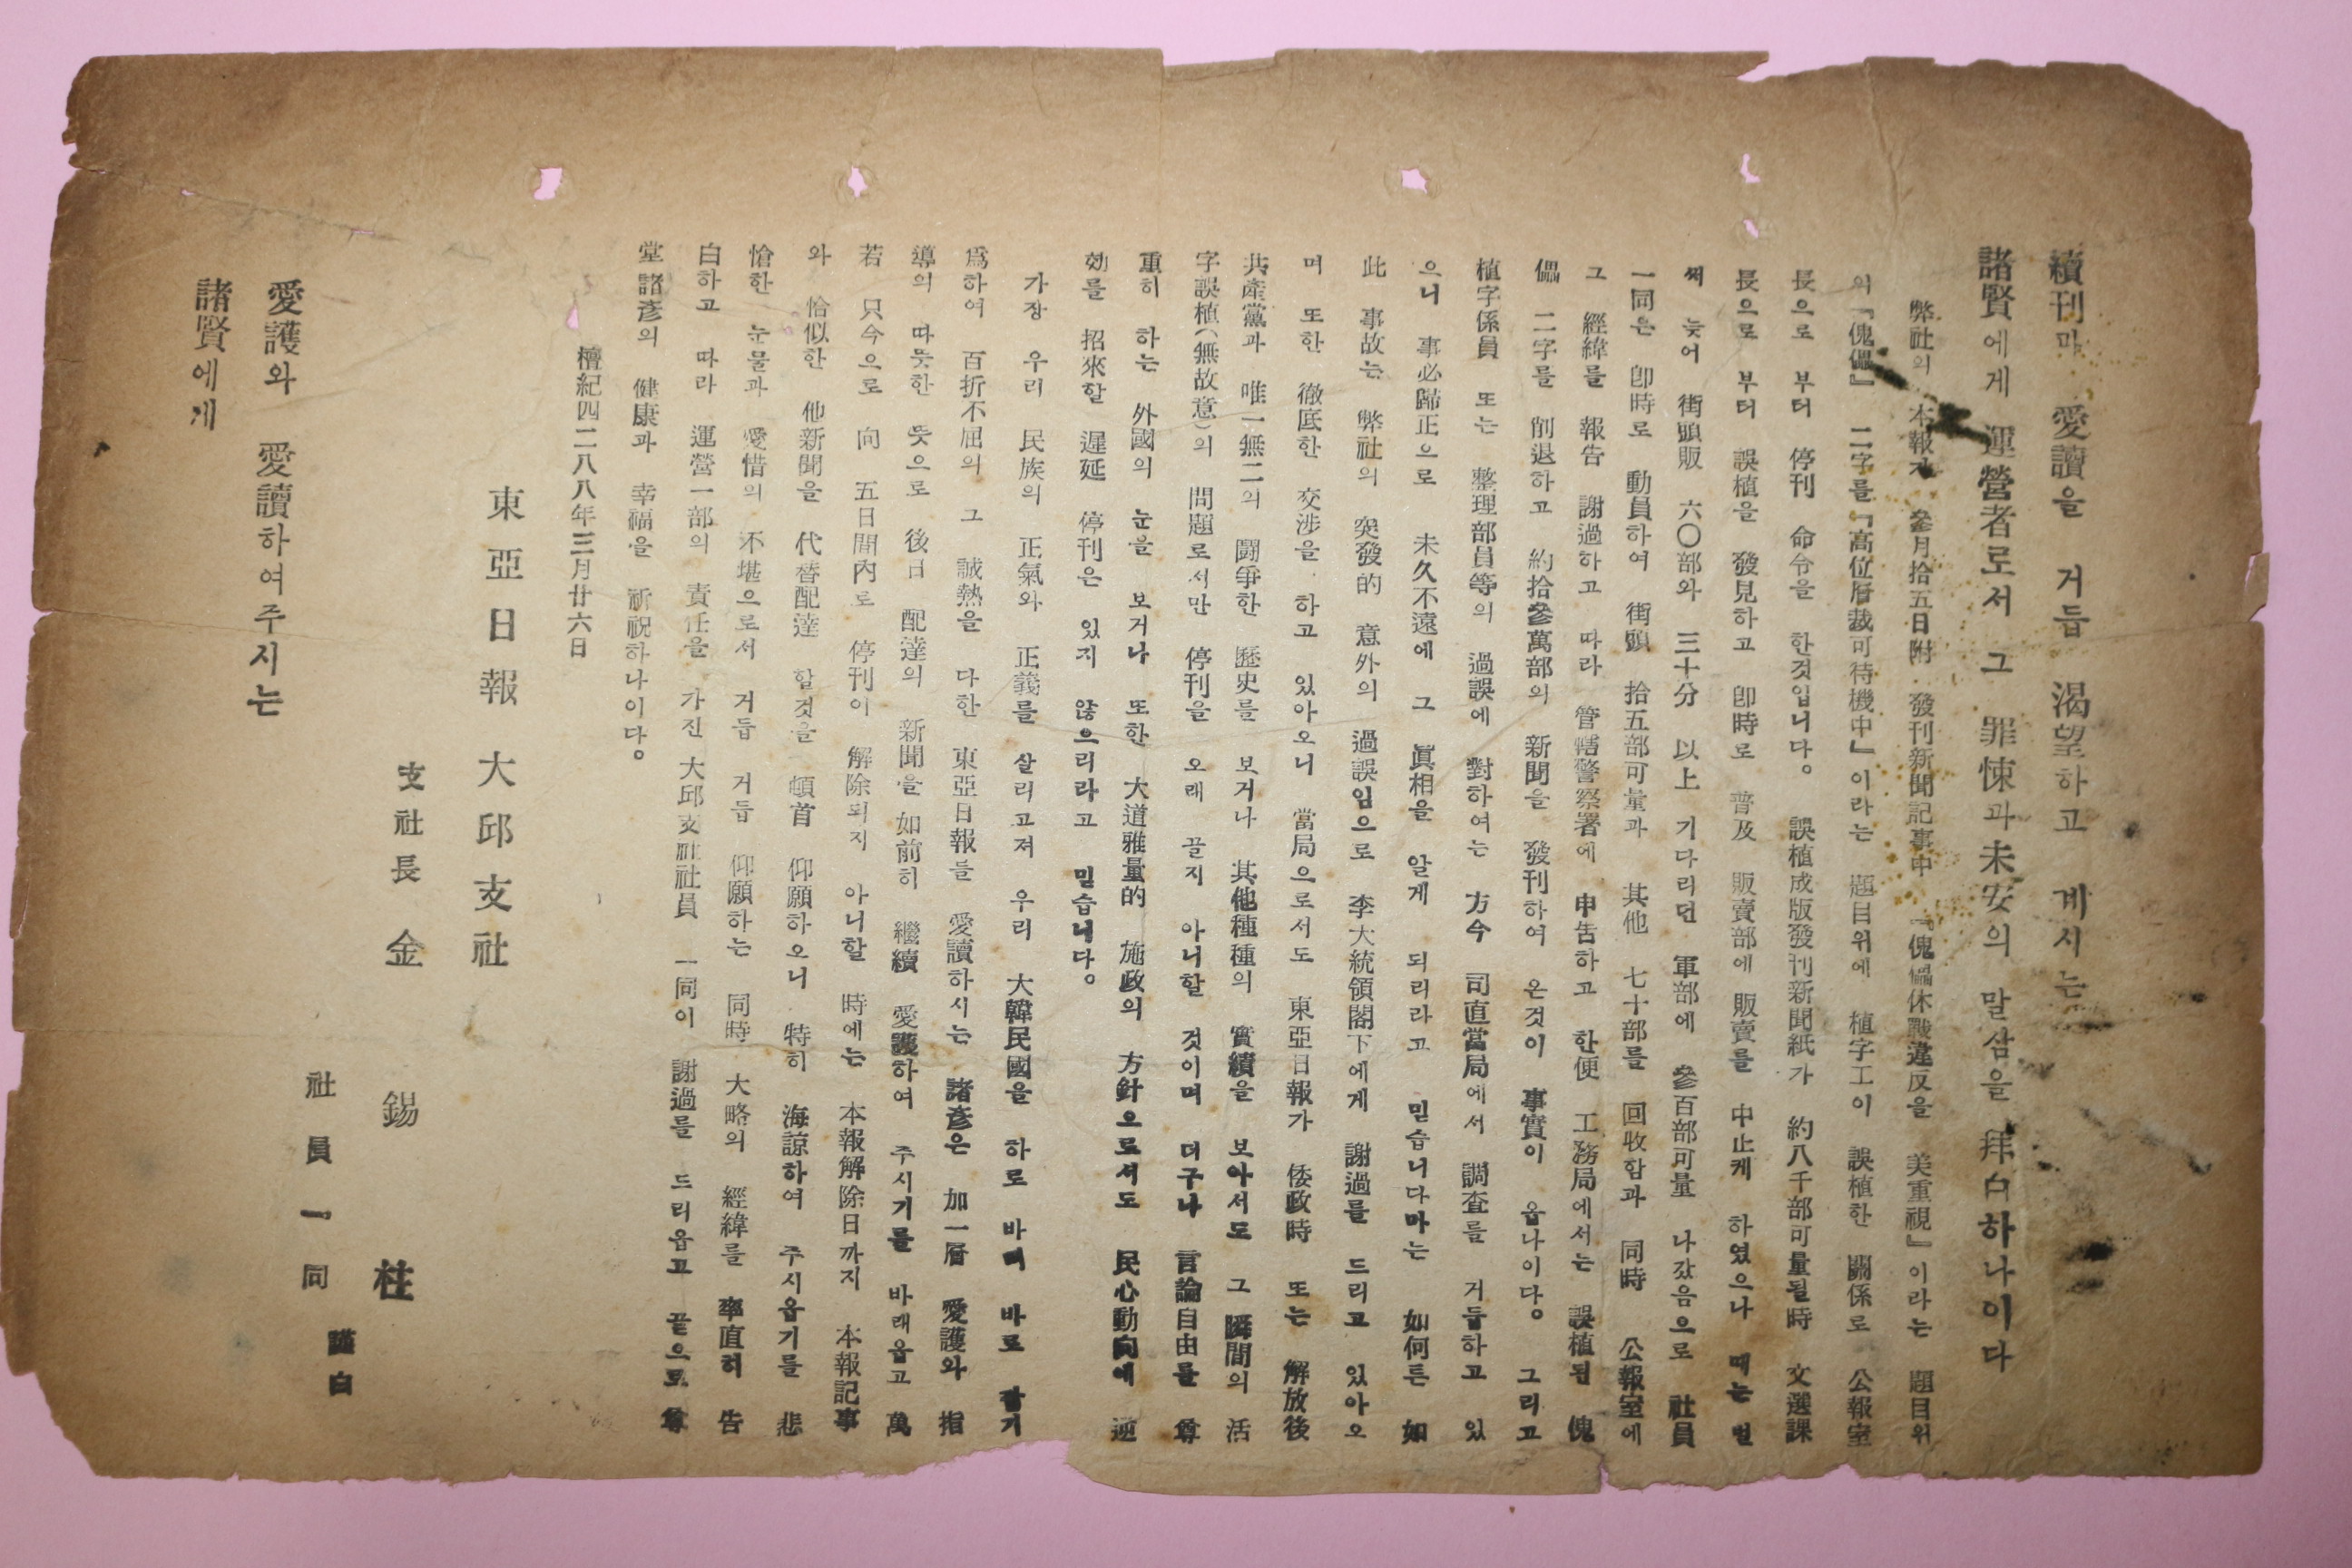 續刊과 愛讀을 거듭 渴望하고 게시는
諸賢에게 運營者로서 그 罪悚과 未安의 말삼을 拜白하나이다
弊社의 本報가 參月拾五日附 發刊新聞記事中 『傀儡休戰違反을 美重視』이라는 題目위
의 『傀儡』 二字를 『高位層裁可待機中』이라는 題目위에 植字工이 誤植한 關係로 公報室
長으로 부터 停刊 命令을 한것입니다。 誤植成版發刊新聞紙가 約八千部可量될時 文選課
長으로 부터 誤植을 發見하고 卽時로 普及 販賣部에 販賣를 中止케 하였으나 때는 벌
써 늦어 街頭販 六〇部와 三十分 以上 기다리던 軍部에 參百部可量 나갔음으로 社員
一同은 卽時로 動員하여 街頭 拾五部可量과 其他 七十部를 回收함과 同時 公報室에
그 經緯를 報告 謝過하고 따라 管轄警察署에 申告하고 한便 工務局에서는 誤植된 傀
儡 二字를 削退하고 約拾參萬部의 新聞을 發刊하여 온것이 事實이 옵나이다。 그리고
植字係員 또는 整理部員等의 過誤에 對하여는 方今 司直當局에서 調査를 거듭하고 있
으니 事必歸正으로 未久不遠에 그 眞相을 알게 되리라고 믿습니다마는 如何튼 如
此 事故는 弊社의 突發的 意外의 過誤임으로 李大統領閣下에게 謝過를 드리고 있아오
며 또한 徹底한 交涉을 하고 있아오니 當局으로서도 東亞日報가 倭政時 또는 解放後
共產黨과 唯一無二의 鬪爭한 歷史를 보거나 其他種種의 實績을 보아서도 그 瞬間의 活
字誤植(無故意)의 問題로서만 停刊을 오래 끌지 아니할 것이며 더구나 言論自由를 尊
重히 하는 外國의 눈을 보거나 또한 大道雅量的 施政의 方針으로서도 民心動向에 逆
効를 招來할 遲延 停刊은 있지 않으리라고 믿습니다。
가장 우리 民族의 正氣와 正義를 살리고져 우리 大韓民國을 하로 바삐 바로 잡기
爲하여 百折不屈의 그 誠熱을 다한 東亞日報를 愛讀하시는 諸彦은 加一層 愛護와 指
導의 따뜻한 뜻으로 後日 配達의 新聞을 如前히 繼續 愛護하여 주시기를 바래옵고 萬
若 只今으로 向 五日間內로 停刊이 解除되지 아니할 時에는 本報解除日까지 本報記事
와 恰似한 他新聞을 代替配達 할것을 頓首 仰願하오니 特히 海諒하여 주시옵기를 悲
愴한 눈물과 愛惜의 不堪으로서 거듭 거듭 仰願하는 同時 大略의 經緯를 率直히 告
白하고 따라 運營一部의 責任을 가진 大邱支社社員 一同이 謝過를 드리옵고 끝으로 尊
堂 諸彦의 健康과 幸福을 祈祝하나이다。
檀紀四二八八年三月廿六日
東亞日報大邱支社
支社長 金錫柱
社員一同
謹白
愛護와 愛讀하여주시는
諸賢에게